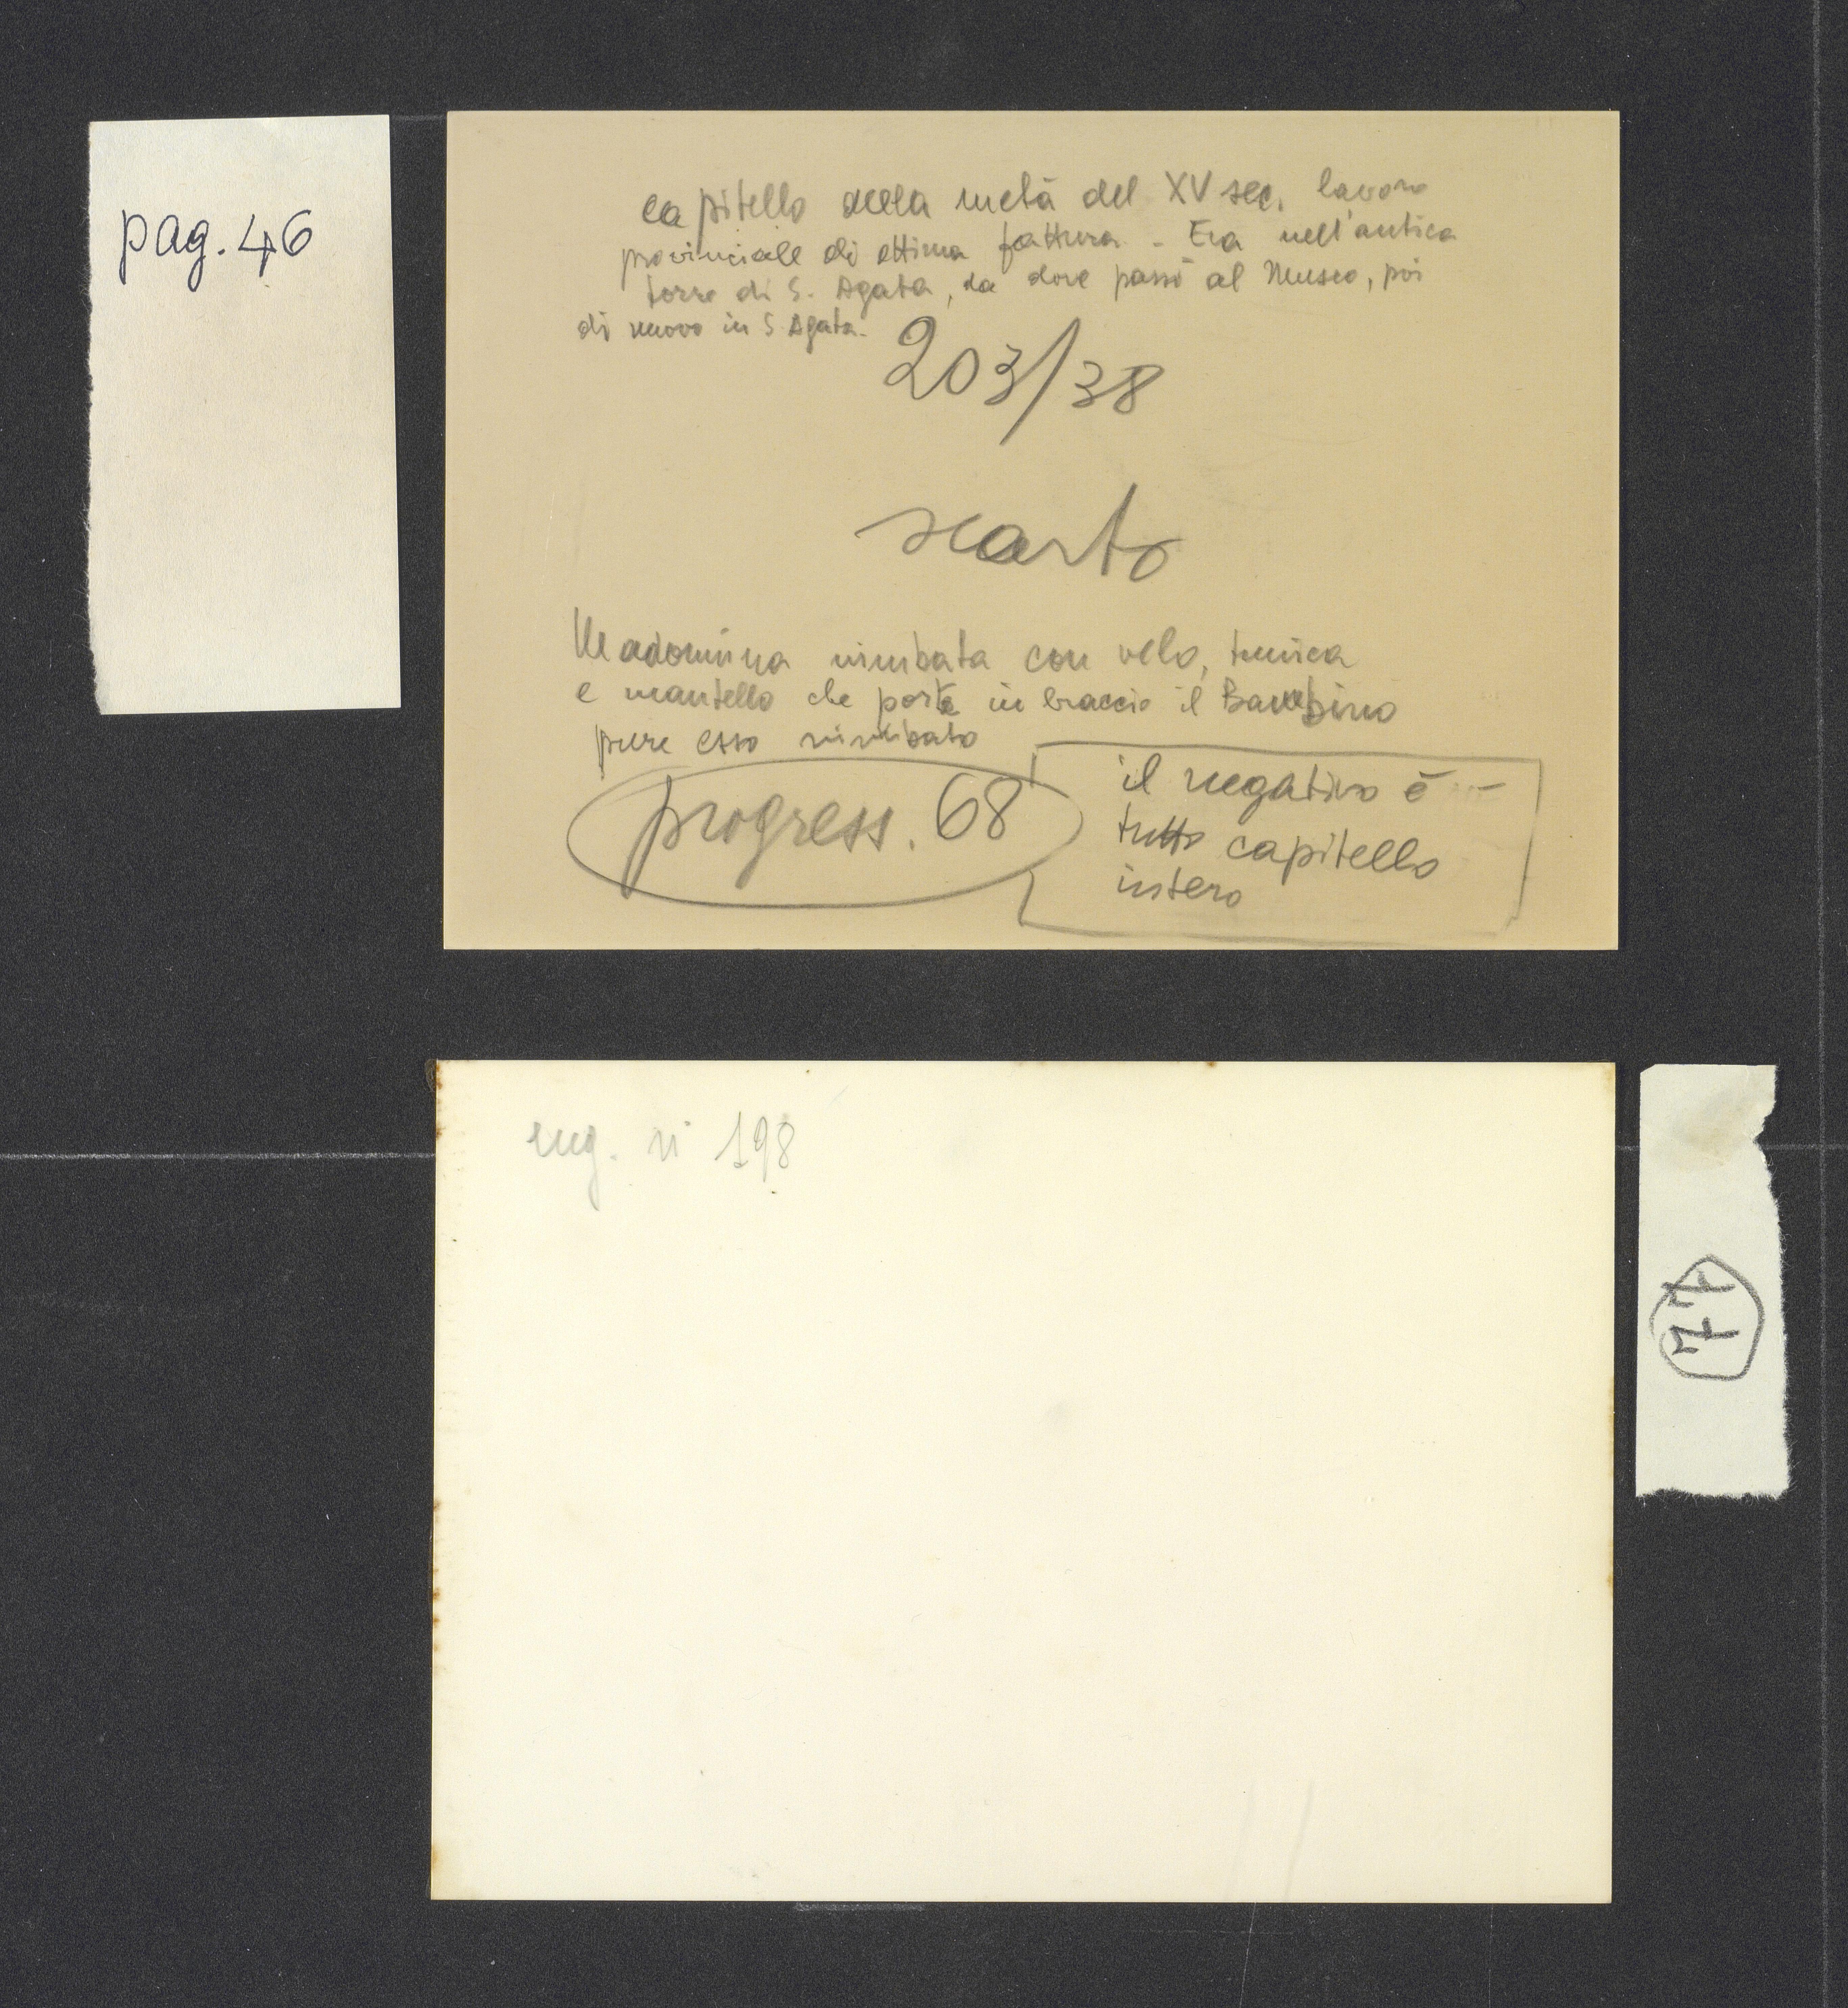 pag. 46
capitello della metà del XV sec. lavoro
provinciale di ottima fattura - Era nell'antica
torre di S. Agata, da dove passò al Museo, poi
di nuovo in S. Agata.
203/38
scarto
Madonnina nimbata con velo, tunica
e mantello che porta in braccio il Bambino
pure esso nimbato
progress. 68
il negativo è -
tutto capitello
intero
neg. n° 198
77